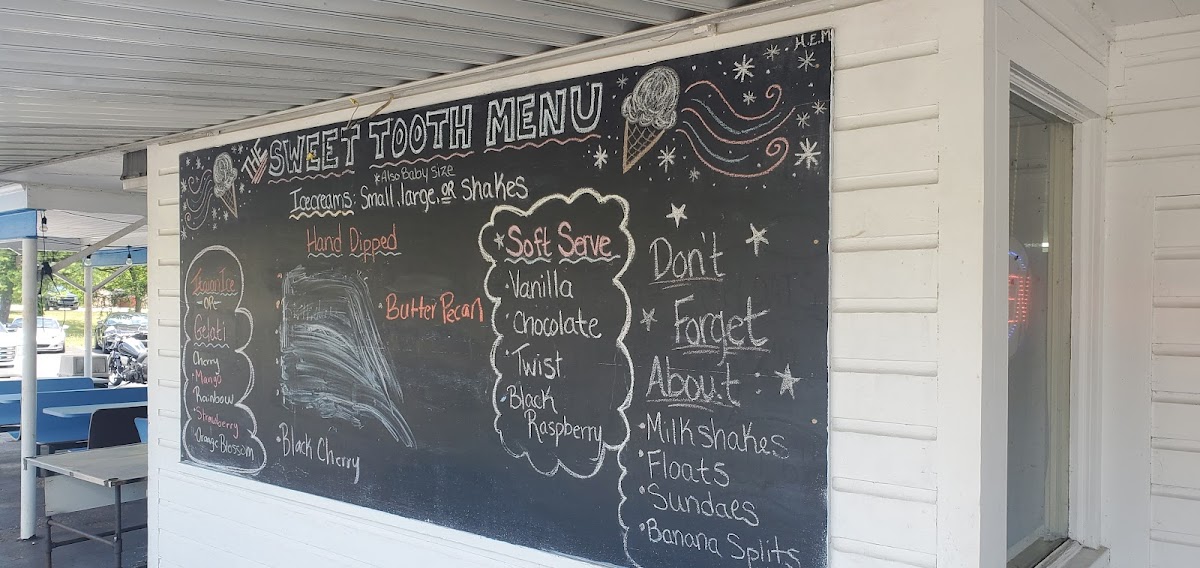 H.E.M
THE SWEET TOOTH MENU
*Also Baby Size
Icecreams: Small, large, OR Shakes
Italian Ice
-OR-
Gelati
Cherry
·Mango
Rainbow
·Strawberry
·Orange Blossom
Hand Dipped
·Butter Pecan
·Black Cherry
*Soft Serve
·Vanilla
·Chocolate
·Twist
·Black
Raspberry
Don't
Forget
About:
·Milkshakes
·Floats
·Sundaes
·Banana Splits